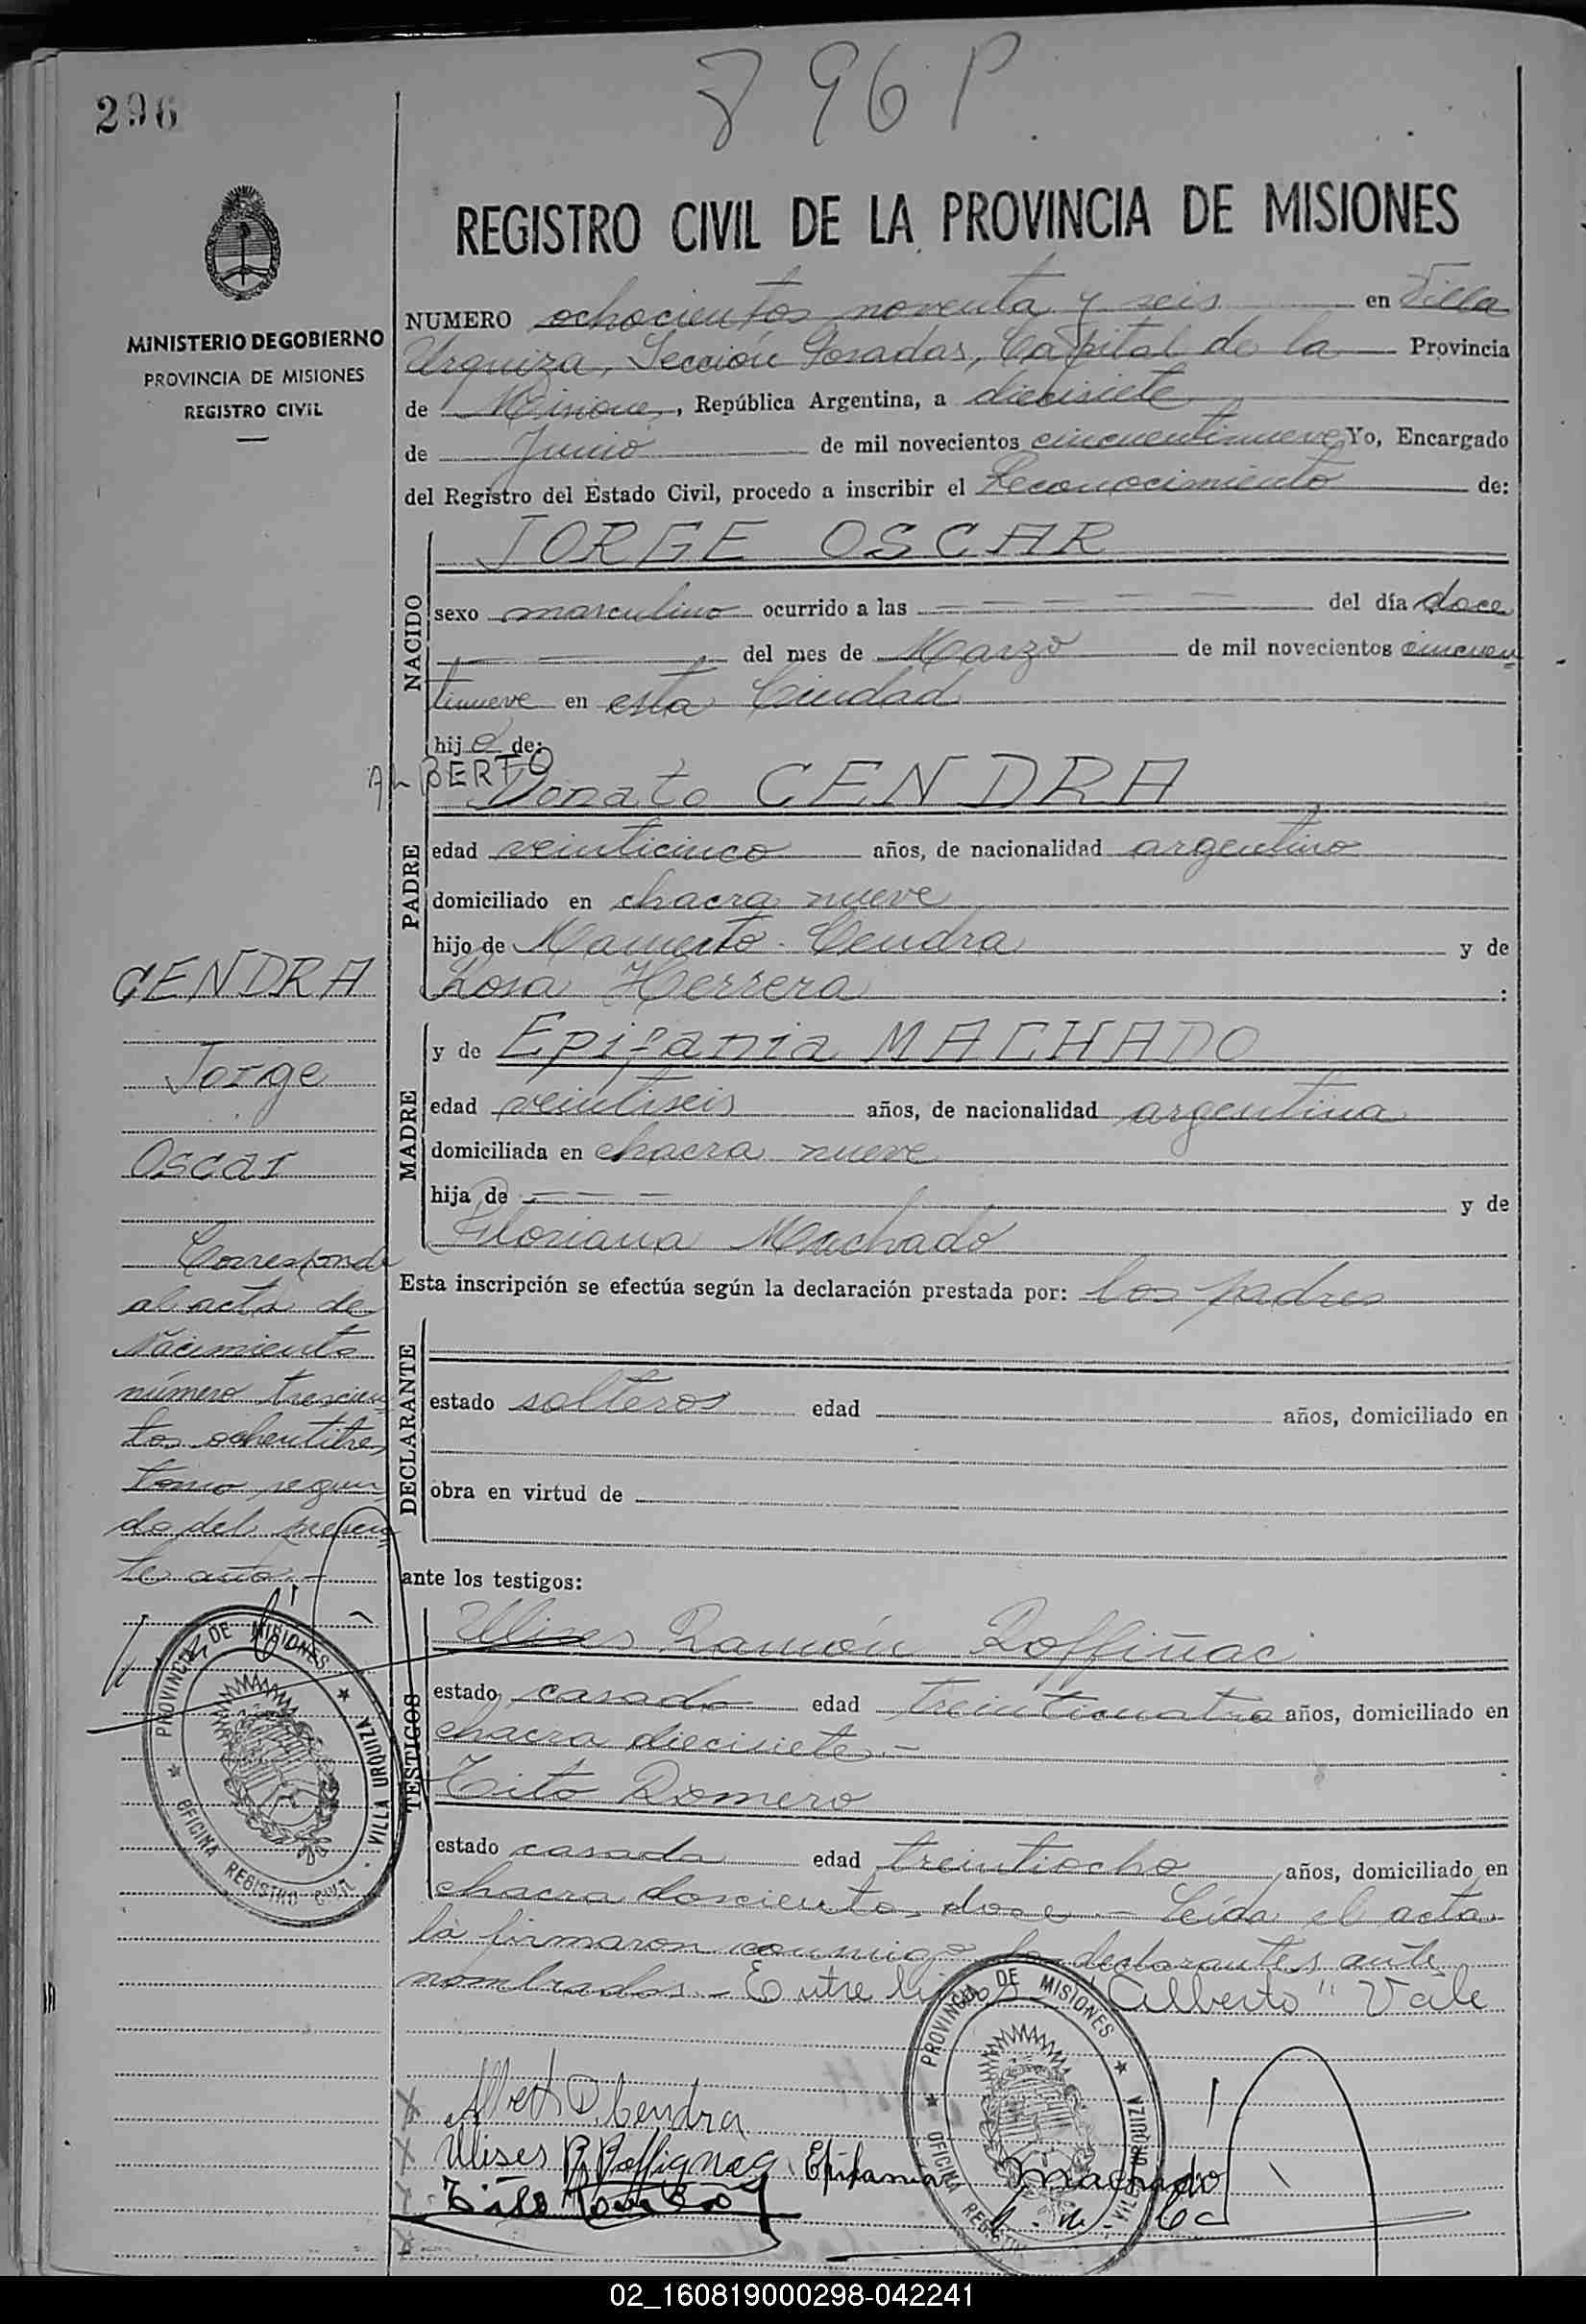 296
896 P.
MINISTERIO DE GOBIERNO
PROVINCIA DE MISIONES
REGISTRO CIVIL
REGISTRO CIVIL DE LA PROVINCIA DE MISIONES
NUMERO ochocientos noventa y seis en Villa
Urquiza, Sección Posadas, Capital de la Provincia
de Misiones, República Argentina, a diecisiete
de Junio de mil novecientos cincuentinueve Yo, Encargado
del Registro del Estado Civil, procedo a inscribir el Reconocimiento de:
NACIDO
JORGE OSCAR
sexo masculino ocurrido a las — — — — — del día doce
— — — del mes de Marzo de mil novecientos cincuen
tinueve en esta Ciudad
hijo de:
ALBERTO
Donato CENDRA
PADRE
edad veinticinco años, de nacionalidad argentino
domiciliado en chacra nueve
hijo de Mamerto Cendra y de
Rosa Herrera :
MADRE
y de Epifania MACHADO
edad veintiseis años, de nacionalidad argentina
domiciliada en chacra nueve
hija de — — — y de
Floriana Machado
Esta inscripción se efectúa según la declaración prestada por: los padres
DECLARANTE
estado solteros edad años, domiciliado en
obra en virtud de
ante los testigos:
TESTIGOS
Ulises Ramón Roffiñac
estado casado edad treinticuatro años, domiciliado en
chacra diecisiete.—
Tito Romero
estado casado edad treintiocho años, domiciliado en
chacra doscientos doce.— Leída el acta
la firmaron conmigo los declarantes ante
nombrados.— Entre líneas "Alberto" Vale
CENDRA
Jorge
Oscar
Corresponde
al acta de
Nacimiento
número trescien
tos ochentitres
tomo segun
do del presen
te año.—
PROVINCIA DE MISIONES
VILLA URQUIZA
OFICINA REGISTRO CIVIL
PROVINCIA DE MISIONES
VILLA URQUIZA
OFICINA REGISTRO
Albert D. Cendra
Ulises R. Roffignac Epifania Machado
Tito Romero
02_160819000298-042241